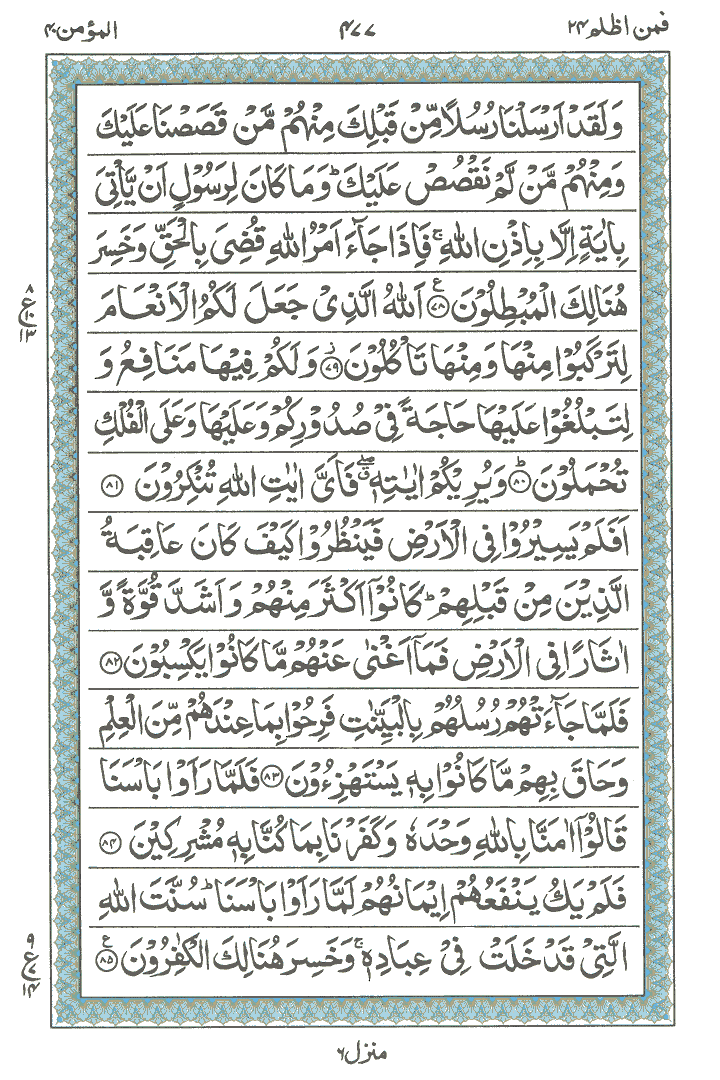 فمن اظلم ٢٤
٤٧٧
المؤمن ٤٠
وَلَقَدْ اَرْسَلْنَا رُسُلًا مِّنْ قَبْلِكَ مِنْهُمْ مَّنْ قَصَصْنَا عَلَيْكَ
وَمِنْهُمْ مَّنْ لَّمْ نَقْصُصْ عَلَيْكَ ؕ وَمَا كَانَ لِرَسُوْلٍ اَنْ يَّاْتِيَ
بِاٰيَةٍ اِلَّا بِاِذْنِ اللّٰهِ ۚ فَاِذَا جَآءَ اَمْرُ اللّٰهِ قُضِيَ بِالْحَقِّ وَخَسِرَ
هُنَالِكَ الْمُبْطِلُوْنَ ﴿٧٨﴾ ع اَللّٰهُ الَّذِيْ جَعَلَ لَكُمُ الْاَنْعَامَ
لِتَرْكَبُوْا مِنْهَا وَمِنْهَا تَاْكُلُوْنَ ﴿٧٩﴾ ز وَلَكُمْ فِيْهَا مَنَافِعُ وَ
لِتَبْلُغُوْا عَلَيْهَا حَاجَةً فِيْ صُدُوْرِكُمْ وَعَلَيْهَا وَعَلَى الْفُلْكِ
تُحْمَلُوْنَ ﴿٨٠﴾ ؕ وَيُرِيْكُمْ اٰيٰتِهٖ ۖ فَاَيَّ اٰيٰتِ اللّٰهِ تُنْكِرُوْنَ ﴿٨١﴾
اَفَلَمْ يَسِيْرُوْا فِى الْاَرْضِ فَيَنْظُرُوْا كَيْفَ كَانَ عَاقِبَةُ
الَّذِيْنَ مِنْ قَبْلِهِمْ ؕ كَانُوْٓا اَكْثَرَ مِنْهُمْ وَاَشَدَّ قُوَّةً وَّ
اٰثَارًا فِى الْاَرْضِ فَمَآ اَغْنٰى عَنْهُمْ مَّا كَانُوْا يَكْسِبُوْنَ ﴿٨٢﴾
فَلَمَّا جَآءَتْهُمْ رُسُلُهُمْ بِالْبَيِّنٰتِ فَرِحُوْا بِمَا عِنْدَهُمْ مِّنَ الْعِلْمِ
وَحَاقَ بِهِمْ مَّا كَانُوْا بِهٖ يَسْتَهْزِءُوْنَ ﴿٨٣﴾ فَلَمَّا رَاَوْا بَاْسَنَا
قَالُوْٓا اٰمَنَّا بِاللّٰهِ وَحْدَهٗ وَكَفَرْنَا بِمَا كُنَّا بِهٖ مُشْرِكِيْنَ ﴿٨٤﴾
فَلَمْ يَكُ يَنْفَعُهُمْ اِيْمَانُهُمْ لَمَّا رَاَوْا بَاْسَنَا ؕ سُنَّتَ اللّٰهِ
الَّتِيْ قَدْ خَلَتْ فِيْ عِبَادِهٖ ۚ وَخَسِرَ هُنَالِكَ الْكٰفِرُوْنَ ﴿٨٥﴾ ع
٨
ع ١٠
١٣
٩
ع ٧
١٤
منزل ٦